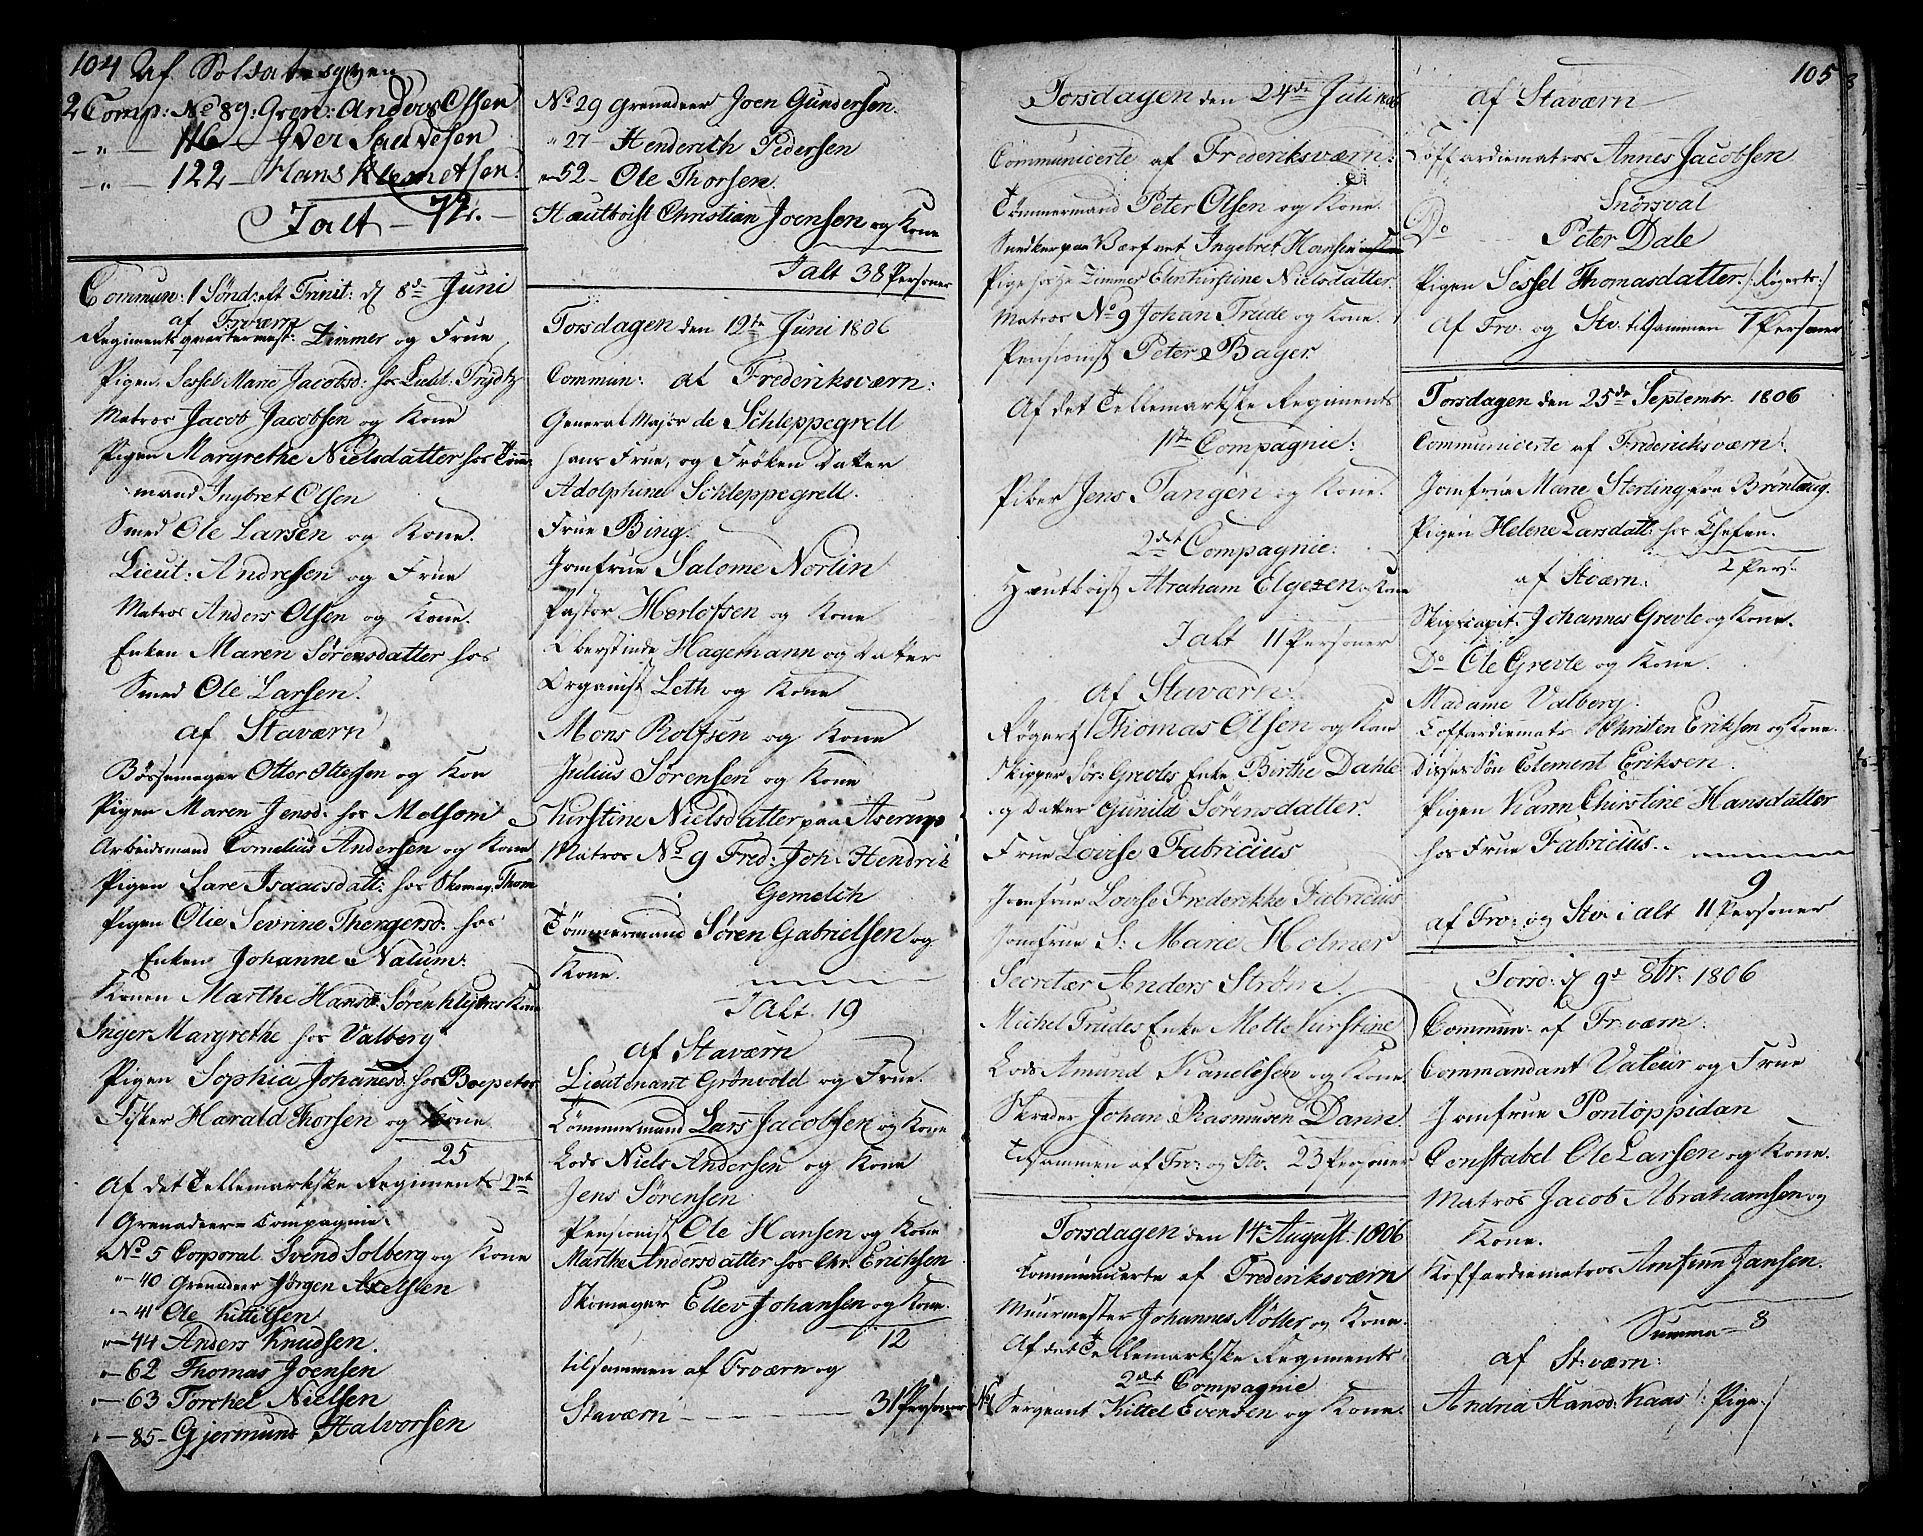 104 Af Soldatesqven
2 Comp: No 89: Gren: Anders Olsen
— " — 116 — Iver Sauvesen
— " — 122 — Hans Klemetsen
Ialt — 72. —
Commun: 1 Sønd: eft Trinit: d 8de Juni
af Frværn
Regiments quartermest: Zimmer og Frue
Pigen Sessel Marie Jacobsd: hos Lieut: Trydtz
Matros Jacob Jacobsen og Kone
Pigen Margrethe Nielsdatter hos Tøm-
mand Ingbret Olsen
Smed Ole Larsen og Kone.
Lieut: Andresen og Frue
Matros Anders Olsen og Kone.
Enken Maren Sørensdatter hos
Smed Ole Larsen.
af Staværn
Bøssemager Otter Ottersen og Kone
Pigen Maren Jensd: hos Molsom
Arbeidsmand Cornelius Andersen og Kone
Pigen Sare Isaacsdatt: hos Skomag. Thom
Pigen Olie Sevrine Thengersd: hos
Enken Johanne Nalum:
Konen Marthe Hansd: Søren Kone
Inger Margrethe hos Valberg
Pigen Sophia Johanesd: hos Boepeter
Fisker Harald Thorsen og Kone
25
Af det Tellemarkske Regiments 2det
Grenadeer-Compagnie.
No 5 Corporal Svend Solberg og Kone
" 40 Grenadeer Jørgen Axelsen
" 41 Ole Kittilsen
" — 44 Anders Knudsen.
" — 62 Thomas Joensen
" — 63 Torckel Nielsen
" — 85 — Gjermund Halvorsen
No 29 Grenadeer Joen Gundersen.
" 27 — Henderich Pedersen
" — 52 — Ole Thorsen.
Hautboist Christian Joensen og Kone
Ialt 38 Personer
Torsdagen den 12te Juni 1806
Commun: af Frederiksværn:
General Major de Schleppegrell
hans Frue, og Frøken Datter
Adolphine Schleppegrell.
Frue Bing.
Jomfrue Salome Norlin
Pastor Herlofsen og Kone
Oberstinde Hagemann og Datter
Organist Leth og Kone
Mons Rolfsen og Kone
Julius Sørensen og Kone
Kirstine Nielsdatter paa Aserup
Matros No 9 Fred: Joh: Hendrik
Gemelch
Tømmermand Søren Gabrielsen og
Kone.
Ialt. 19
af Staværn
Lieutenant Grønvold og Frue.
Tømmermand Lars Jacobsen og Kone
Lods Niels Andersen og Kone
Jens Sørensen
Pensionist Ole Hansen og Kone
Marthe Andersdatter hos Chr. Erichsen
Skomager Ellev Johansen og Kone.
12
tilsammen af Frværn og
Staværn — — — — 31 Personer
Torsdagen den 24de Juli 1806
Communicerte af Frederiksværn:
Tømmermand Peter Olsen og Kone.
Snedker paa Værfvet Ingebret Hansen
Pige hos Zimmer Elen Kirstine Nielsdatter
Matros No 9 Johan Trude og Kone.
Pensionist Peter Bager
Af det Tellemarkske Regiments
1ste Compagnie:
Piber Jens Tangen og Kone.
2det Compagnie:
Hautboist Abraham Elgesen og Kone
Ialt 11 Personer
Af Staværn:
Røgert Thomas Olsen og Kone
Skipper Sør: Grevles Enke Birthe Dahle
og Datter Gunild Sørensdatter.
Frue Lovise Fabricius
Jomfrue Lovise Frederikke Fabricius
Jomfrue S: Marie Holmer
Secretær Anders Strøm.
Michel Trudes Enke Mette Kirstine
Lods Amund Kanelsen og Kone.
Skræder Johan Rasmusen Dann.
Tilsammen af Frv: og Stv. 23 Personer
Torsdagen den 14de August. 1806
Communicerte af Frederiksværn
Muurmester Johannes Møller og Kone.
Af det Tellemarkske Regiments
2det Compagnie
No 1 Sergeant Kittel Evensen og Kone.
105
af Staværn
Coffardiematros Annes Jacobsen
Snørsval
Do Peter Dale
Pigen Sessel Thomasdatter /: Røgerts:/
Af Frv: og Stv. tilsammen 7 Personer
Torsdagen den 25de Septembr. 1806
Communicerte af Frederiksværn:
Jomfrue Marie Sterling fra Brønlaug.
Pigen Helene Larsdatt: hos Chefen.
2 Pers:
af Stværn:
Skipscapit. Johannes Grevle og Kone.
Do Ole Grevle og Kone.
Madame Valberg.
Coffardiematr. Christen Eriksen og Kone.
Disses Søn Clement Eriksen.
Pigen Karn Chirstine Hansdatter
hos Frue Fabricius.
9
af Frv: og Stv. i alt 11 Personer
Torsd: d 9de 8br. 1806
Commun: af Fr:værn:
Commandant Valeur og Frue
Jomfrue Pontoppidan
Constabel Ole Larsen og Kone.
Matros Jacob Abrahamsen og
Kone.
Koffardiematros Amfinn Jansen.
Summa — 8
af St:værn:
Andria Hansd: Kaas /: Pige :/